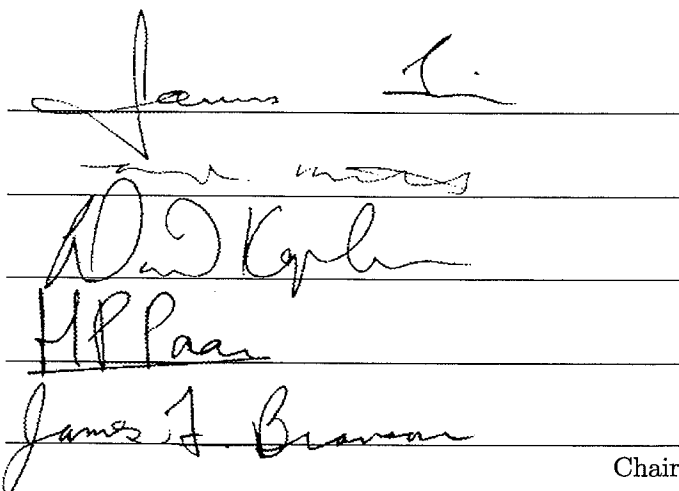 James Lin
David Kaplan
H P Paar
James G. Branson
Chair